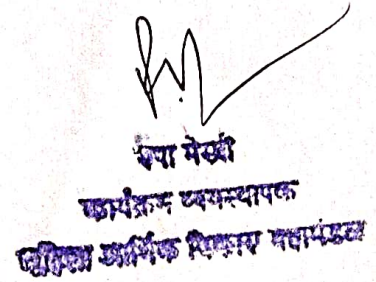 रूपा मेस्त्री
कार्यक्रम व्यवस्थापक
महिला आर्थिक विकास महामंडळ